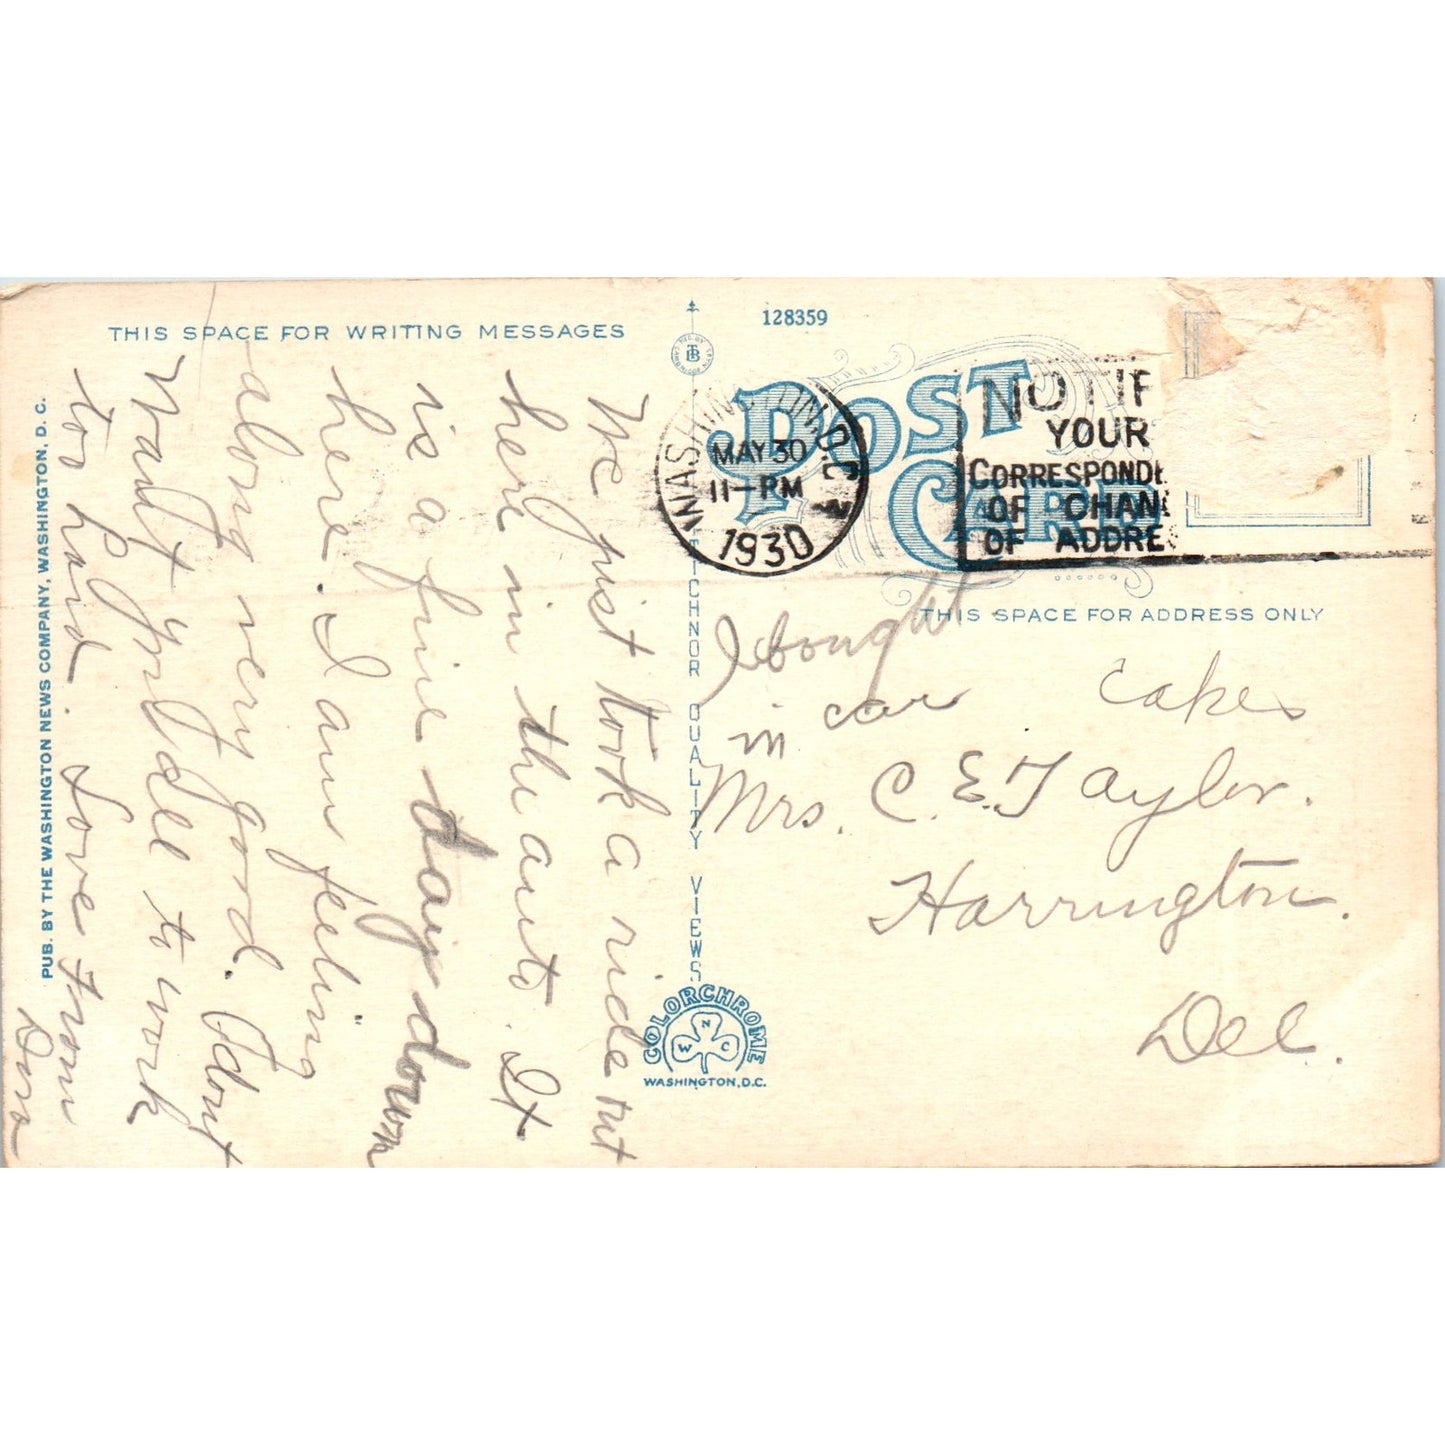 THIS SPACE FOR WRITING MESSAGES
128359
POST CARD
WASHINGTON, D.C.
MAY 30
11-PM
1930
NOTIF
YOUR
CORRESPONDE
OF CHAN
OF ADDRE
THIS SPACE FOR ADDRESS ONLY
We just took a ride out
here in the auto. It
is a fine day down
here. I am feeling
along very good. I dont
want you all to work
too hard. Love from
I bought
in car cakes
Mrs. C. E. Taylor.
Harrington.
Del.
PUB. BY THE WASHINGTON NEWS COMPANY, WASHINGTON, D. C.
TICHNOR QUALITY VIEWS
COLORCHROME
W N C
WASHINGTON, D.C.